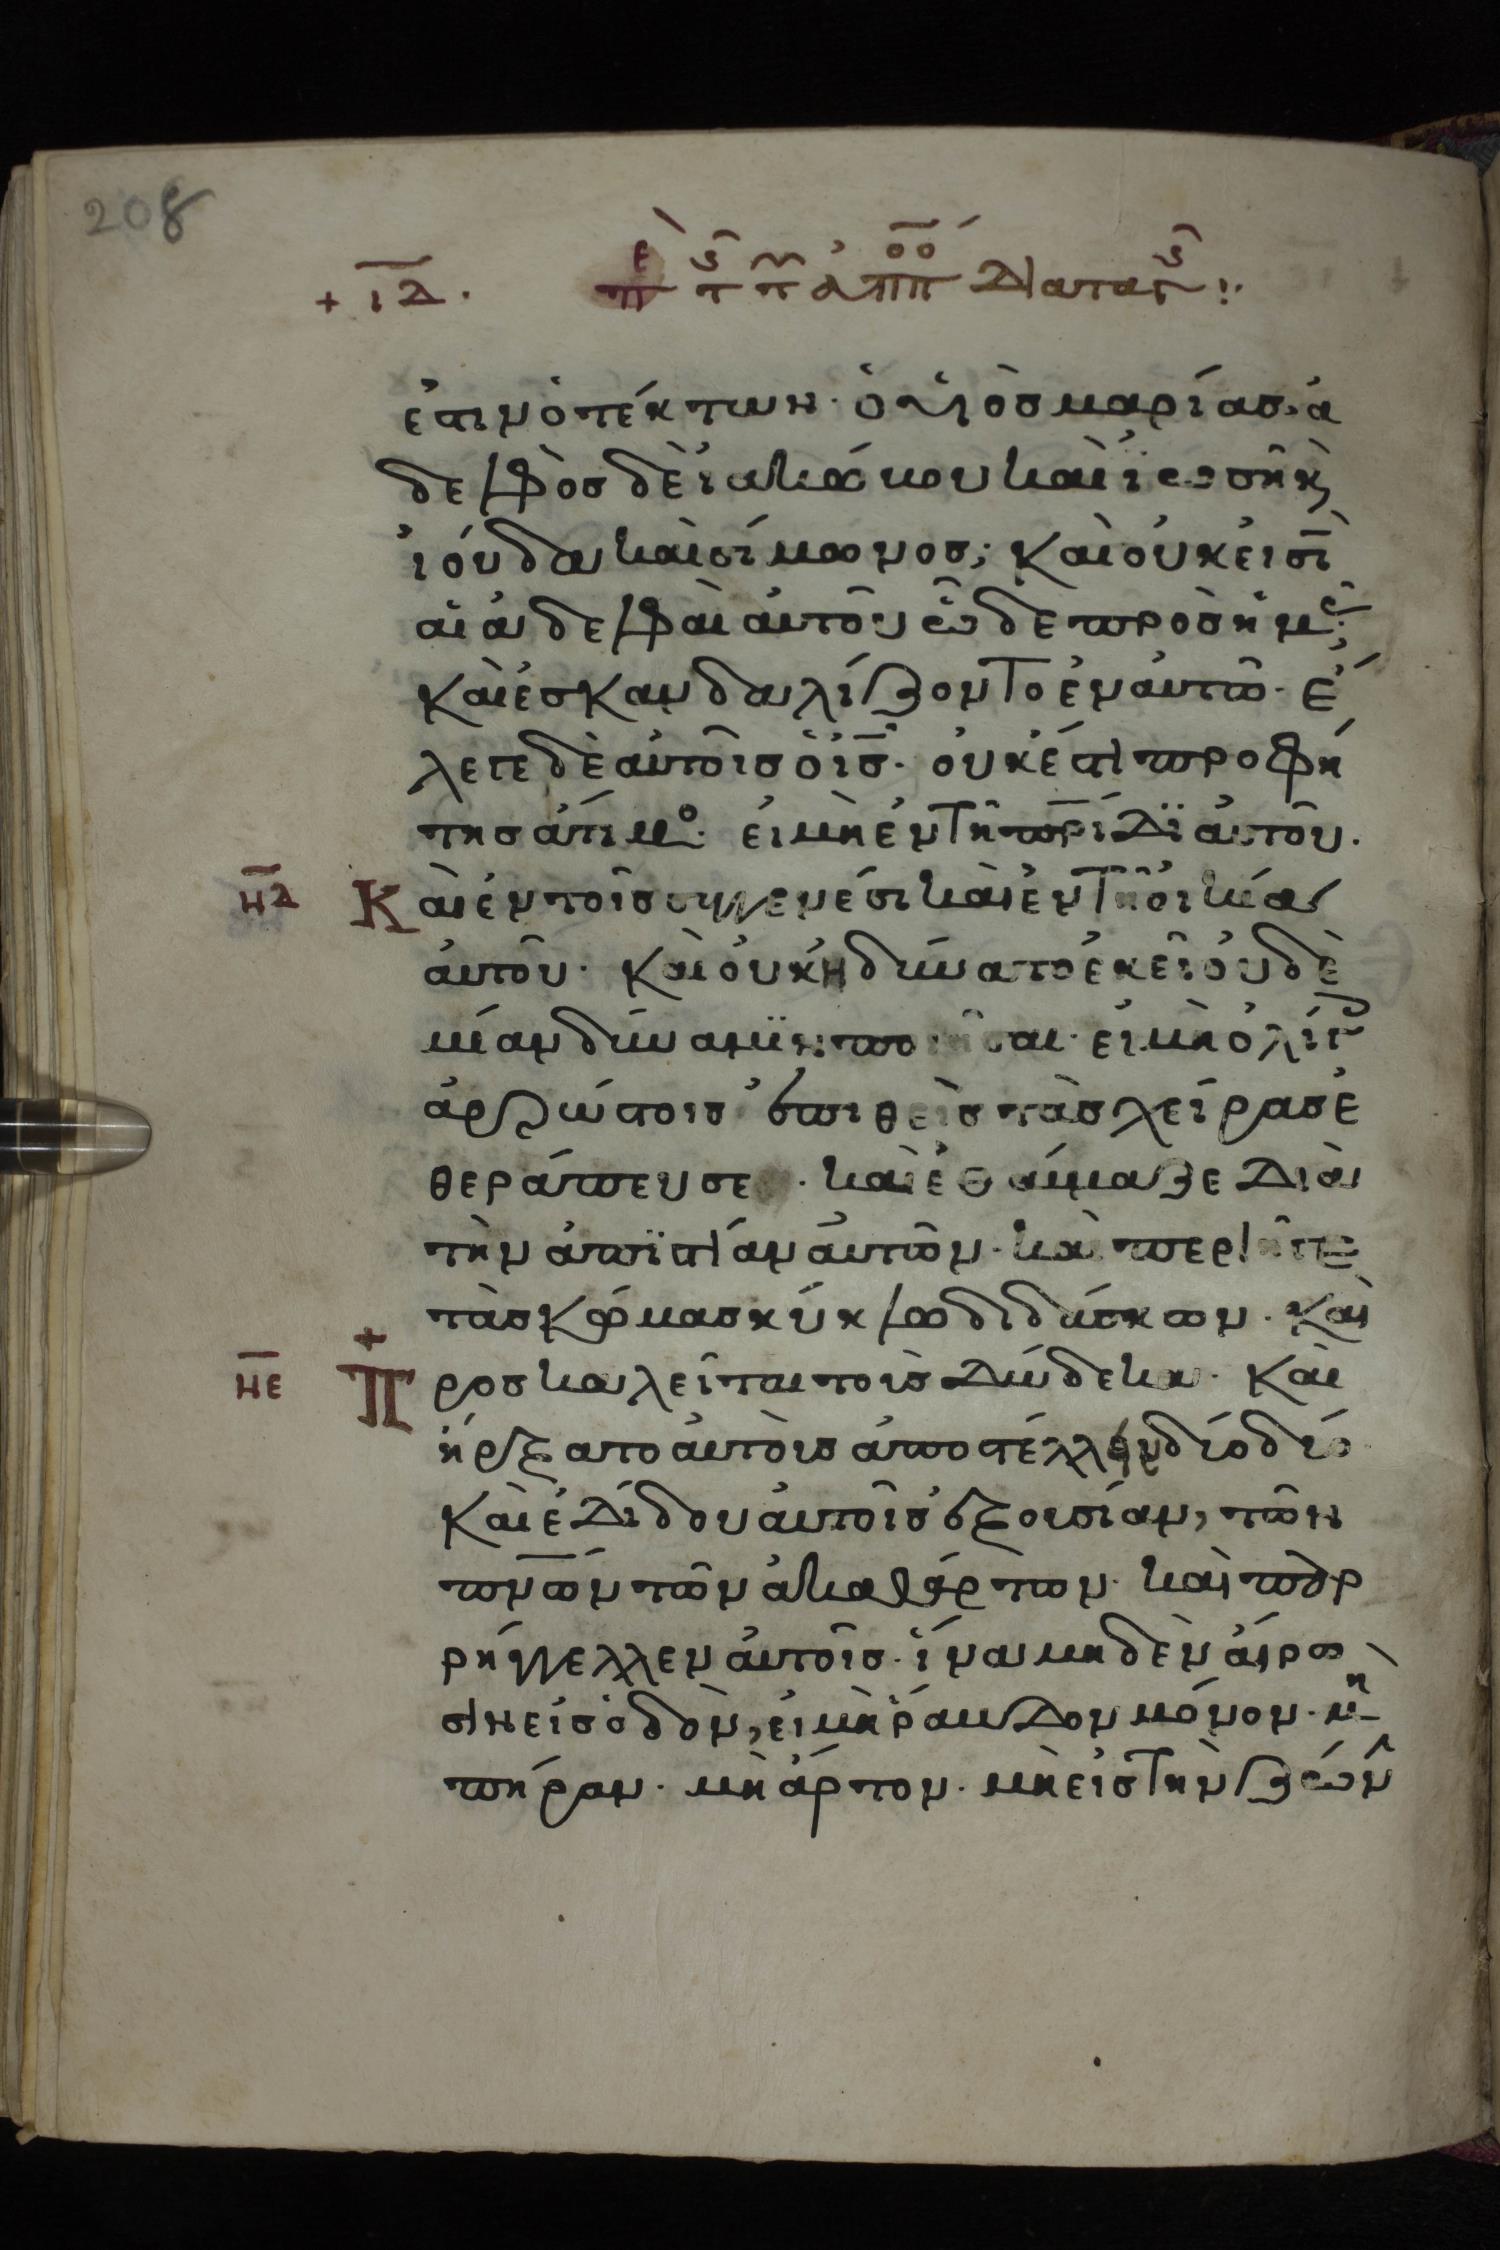 208
+ ιδ.
ἐστιν ὁ τέκτων· ὁ υἱὸσ μαρίασ, ἀ
δελφὸσ δὲ ἰακώκου καὶ ἰωσῆ κ
ἰούδα καὶ σίμωνοσ; καὶ οὐκ εἰσὶ
αἱ ἀδελφαὶ αὐτοῦ ὧδε πρὸσ ἡμ
καὶ ἐσκανδαλίζοντο ἐν αὐτῶ· ἔ
λεγε δὲ αὐτοῖσ ὁ ισ· οὐκ ἔστι προφή
τησ ἄτιμο· εἰ μὴ ἐν τῆ πρίδϊ αὐτοῦ.
νδ Καὶ ἐν τοῖσ συγγενέσι καὶ ἐν τῆ οἰκία
αὐτοῦ· καὶ οὐκ ἠδύνατο ἐκεῖ οὐδὲ
μίαν δύναμϊν ποιῆσαι· εἰ μὴ ὀλίγ
ἀρρώστοισ ἐπιθεὶσ τὰσ χεῖρασ ἐ
θεράπευσε· καὶ ἐθαύμαζε διὰ
τὴν ἀπϊστίαν αὐτῶν· καὶ περιῆγε
τὰσ κώμασ κύκλω διδάσκων· καὶ
νε Προσκαλεῖται τοὺσ δώδεκα· καὶ
ἤρξατο αὐτοὺσ ἀποστέλλειν δύο δύο
καὶ ἐδίδου αὐτοῖσ ἐξουσίαν, τῶν
πνων τῶν ἀκαθάρτων· καὶ παρ
ρήγγελλεν αὐτοῖσ· ἵνα μηδὲν αἴρω
σιν εἰσ ὁδὸν, εἰ μὴ ῥάβδον μόνον· μὴ
πήραν· μὴ ἄρτον· μὴ εἰσ τὴν ζών